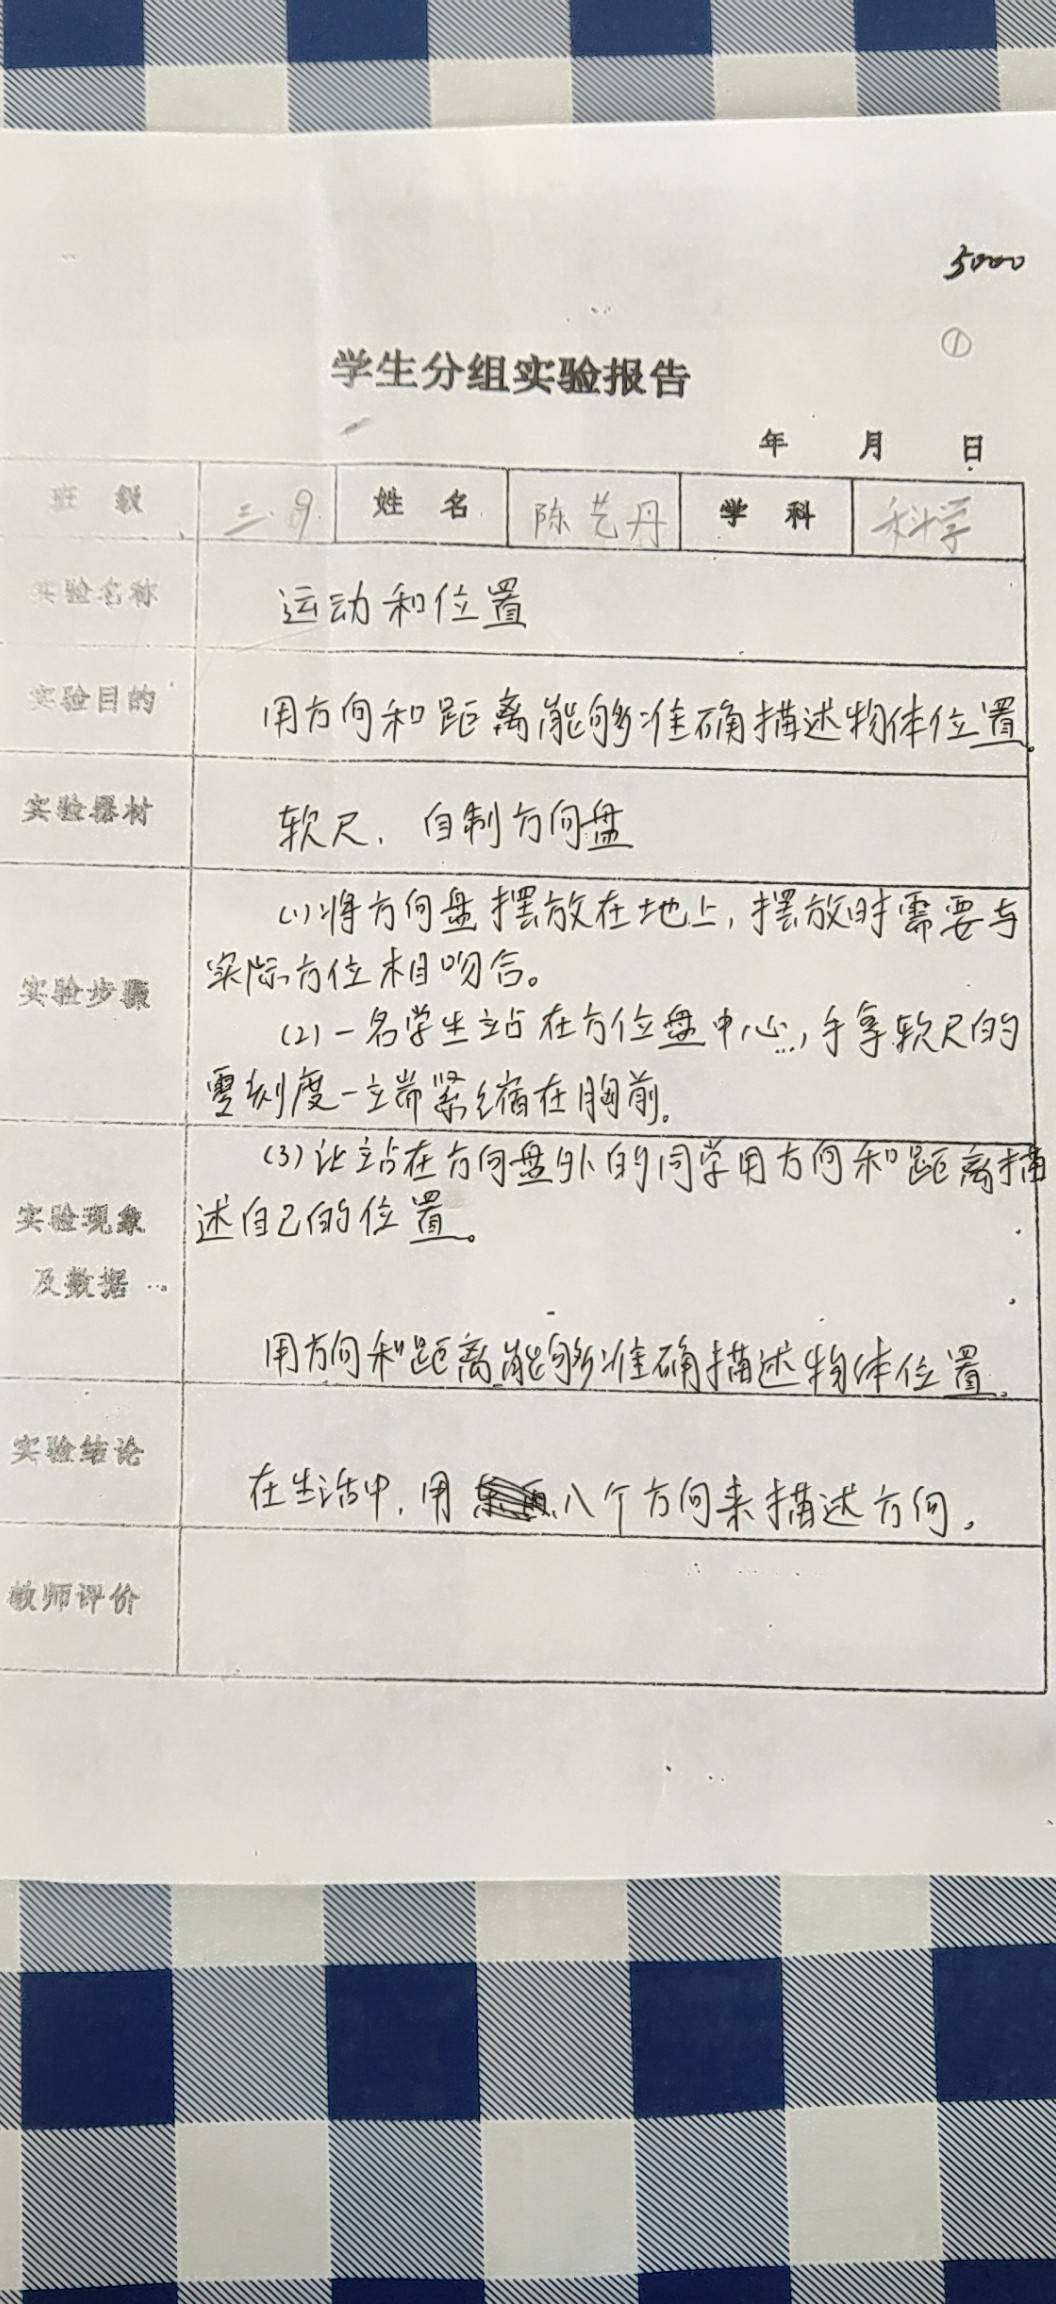 5000
①
学生分组实验报告
年 月 日
班 级 三.9. 姓 名 陈艺丹 学 科 科学
实验名称 运动和位置
实验目的 用方向和距离能够准确描述物体位置。
实验器材 软尺. 自制方向盘
(1)将方向盘摆放在地上,摆放时需要与
实验步骤 实际方位相吻合。
(2)一名学生站在方位盘中心,手拿软尺的
零刻度一端紧缩在胸前。
(3)让站在方向盘外的同学用方向和距离描
实验现象 述自己的位置。
及数据
用方向和距离能够准确描述物体位置。
实验结论
在生活中.用八个方向来描述方向。
教师评价